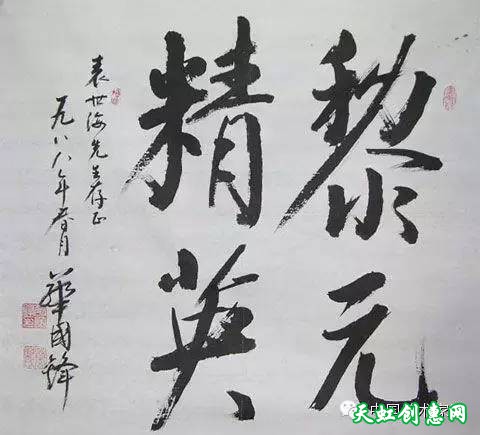 黎元
精英
袁世海先生存正
一九八八年春月
華國鋒
中国
天虹创意网